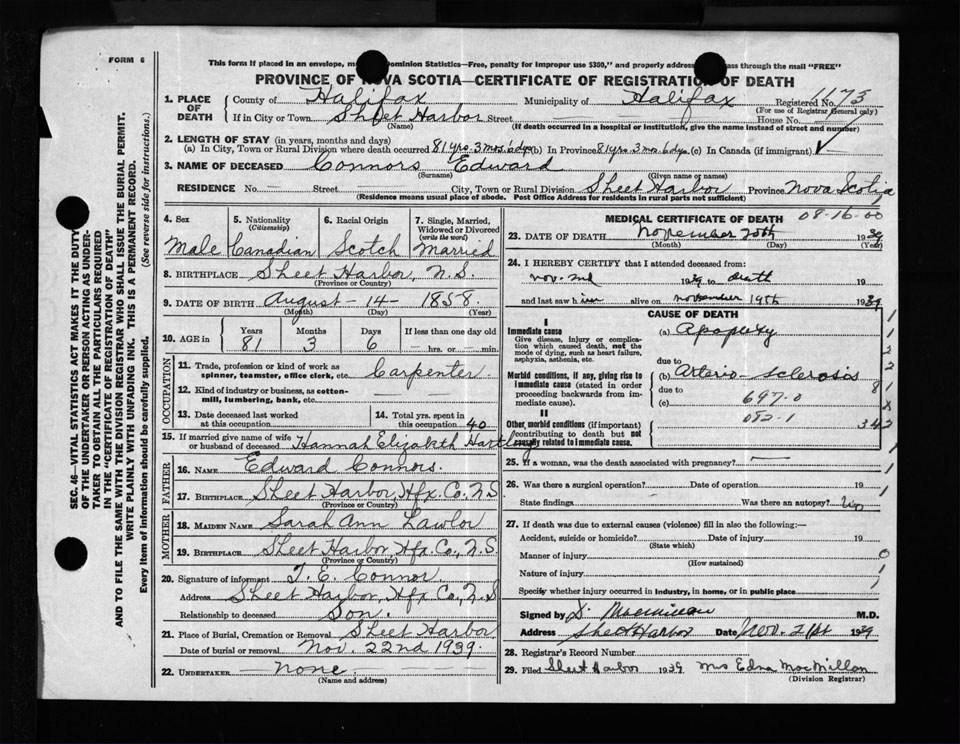 FORM 6
This form if placed in an envelope, ma Dominion Statistics—Free, penalty for improper use $300," and properly address ass through the mail "FREE"
PROVINCE OF NOVA SCOTIA—CERTIFICATE OF REGISTRATION OF DEATH
1. PLACE OF DEATH County of Halifax Municipality of Halifax Registered No. 1173
(For use of Registrar General only)
If in City or Town Sheet Harbor Street House No.
(Name) (If death occurred in a hospital or institution, give the name instead of street and number)
2. LENGTH OF STAY (in years, months and days)
(a) In City, Town or Rural Division where death occurred 81 yrs. 3 mos. 6 dys. (b) In Province 81 yrs 3 mos 6 dys. (c) In Canada (if immigrant)
3. NAME OF DECEASED Connors Edward
(Surname) (Given name or names)
RESIDENCE No. — Street — City, Town or Rural Division Sheet Harbor Province Nova Scotia
(Residence means usual place of abode. Post Office Address for residents in rural parts not sufficient)
4. Sex 5. Nationality 6. Racial Origin 7. Single, Married, Widowed or Divorced
(Citizenship) (Write the word)
Male Canadian Scotch Married
8. BIRTHPLACE Sheet Harbor, N.S.
(Province or Country)
9. DATE OF BIRTH August -14- 1858.
(Month) (Day) (Year)
10. AGE in Years Months Days If less than one day old
81 3 6 — hrs. or — min.
OCCUPATION
11. Trade, profession or kind of work as spinner, teamster, office clerk, etc. Carpenter.
12. Kind of industry or business, as cotton-mill, lumbering, bank, etc.
13. Date deceased last worked at this occupation 14. Total yrs. spent in this occupation 40
15. If married give name of wife or husband of deceased Hannah Elizabeth Hartling
FATHER
16. NAME Edward Connors.
17. BIRTHPLACE Sheet Harbor, Hfx. Co., N.S.
(Province or Country)
MOTHER
18. MAIDEN NAME Sarah Ann Lawlor
19. BIRTHPLACE Sheet Harbor, Hfx. Co., N.S.
(Province or Country)
20. Signature of informant T. E. Connor.
Address Sheet Harbor, Hfx. Co., N.S
Relationship to deceased Son.
21. Place of Burial, Cremation or Removal Sheet Harbor
Date of burial or removal Nov. 22nd 1939.
22. UNDERTAKER none
(Name and address)
MEDICAL CERTIFICATE OF DEATH 08-16-00
23. DATE OF DEATH November 20th 1939
(Month) (Day) (Year)
24. I HEREBY CERTIFY that I attended deceased from:
Nov. 2nd 1939 to death 19
and last saw him alive on November 19th 1939
CAUSE OF DEATH
I
Immediate cause (a) Apoplexy
Give disease, injury or complication which caused death, not the mode of dying, such as heart failure, asphyxia, asthenia, etc.
due to
Morbid conditions, if any, giving rise to immediate cause (stated in order proceeding backwards from immediate cause). (b) Arterio-sclerosis
due to
(c) 697-0
II
082-1
Other morbid conditions (if important) contributing to death but not causally related to immediate cause.
25. If a woman, was the death associated with pregnancy?
26. Was there a surgical operation? Date of operation 19
State findings Was there an autopsy? No
27. If death was due to external causes (violence) fill in also the following:—
Accident, suicide or homicide? Date of injury 19
(State which)
Manner of injury
(How sustained)
Nature of injury
Specify whether injury occurred in industry, in home, or in public place
Signed by D. Macmillan M.D.
Address Sheet Harbor Date Nov. 21st 1939
28. Registrar's Record Number
29. Filed Sheet Harbor 1939 Mrs Edna MacMillan
(Division Registrar)
SEC. 46—VITAL STATISTICS ACT MAKES IT THE DUTY
OF THE UNDERTAKER OR PERSON ACTING AS UNDER-
TAKER TO OBTAIN ALL THE PARTICULARS REQUIRED
IN THE "CERTIFICATE OF REGISTRATION OF DEATH"
AND TO FILE THE SAME WITH THE DIVISION REGISTRAR WHO SHALL ISSUE THE BURIAL PERMIT.
WRITE PLAINLY WITH UNFADING INK. THIS IS A PERMANENT RECORD.
Every item of information should be carefully supplied. (See reverse side for instructions.)